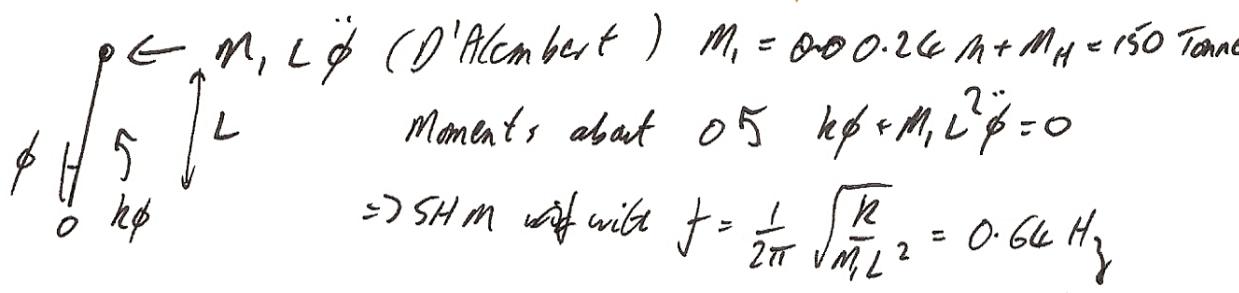 ← M₁ L φ̈ (D'Alembert) M₁ = 0.24 M + M_H = 150 Tonne
L
φ
Moments about O ↺ kφ + M₁ L² φ̈ = 0
O kφ
=> SHM with f = 1/2π √(k/M₁L²) = 0.64 Hz